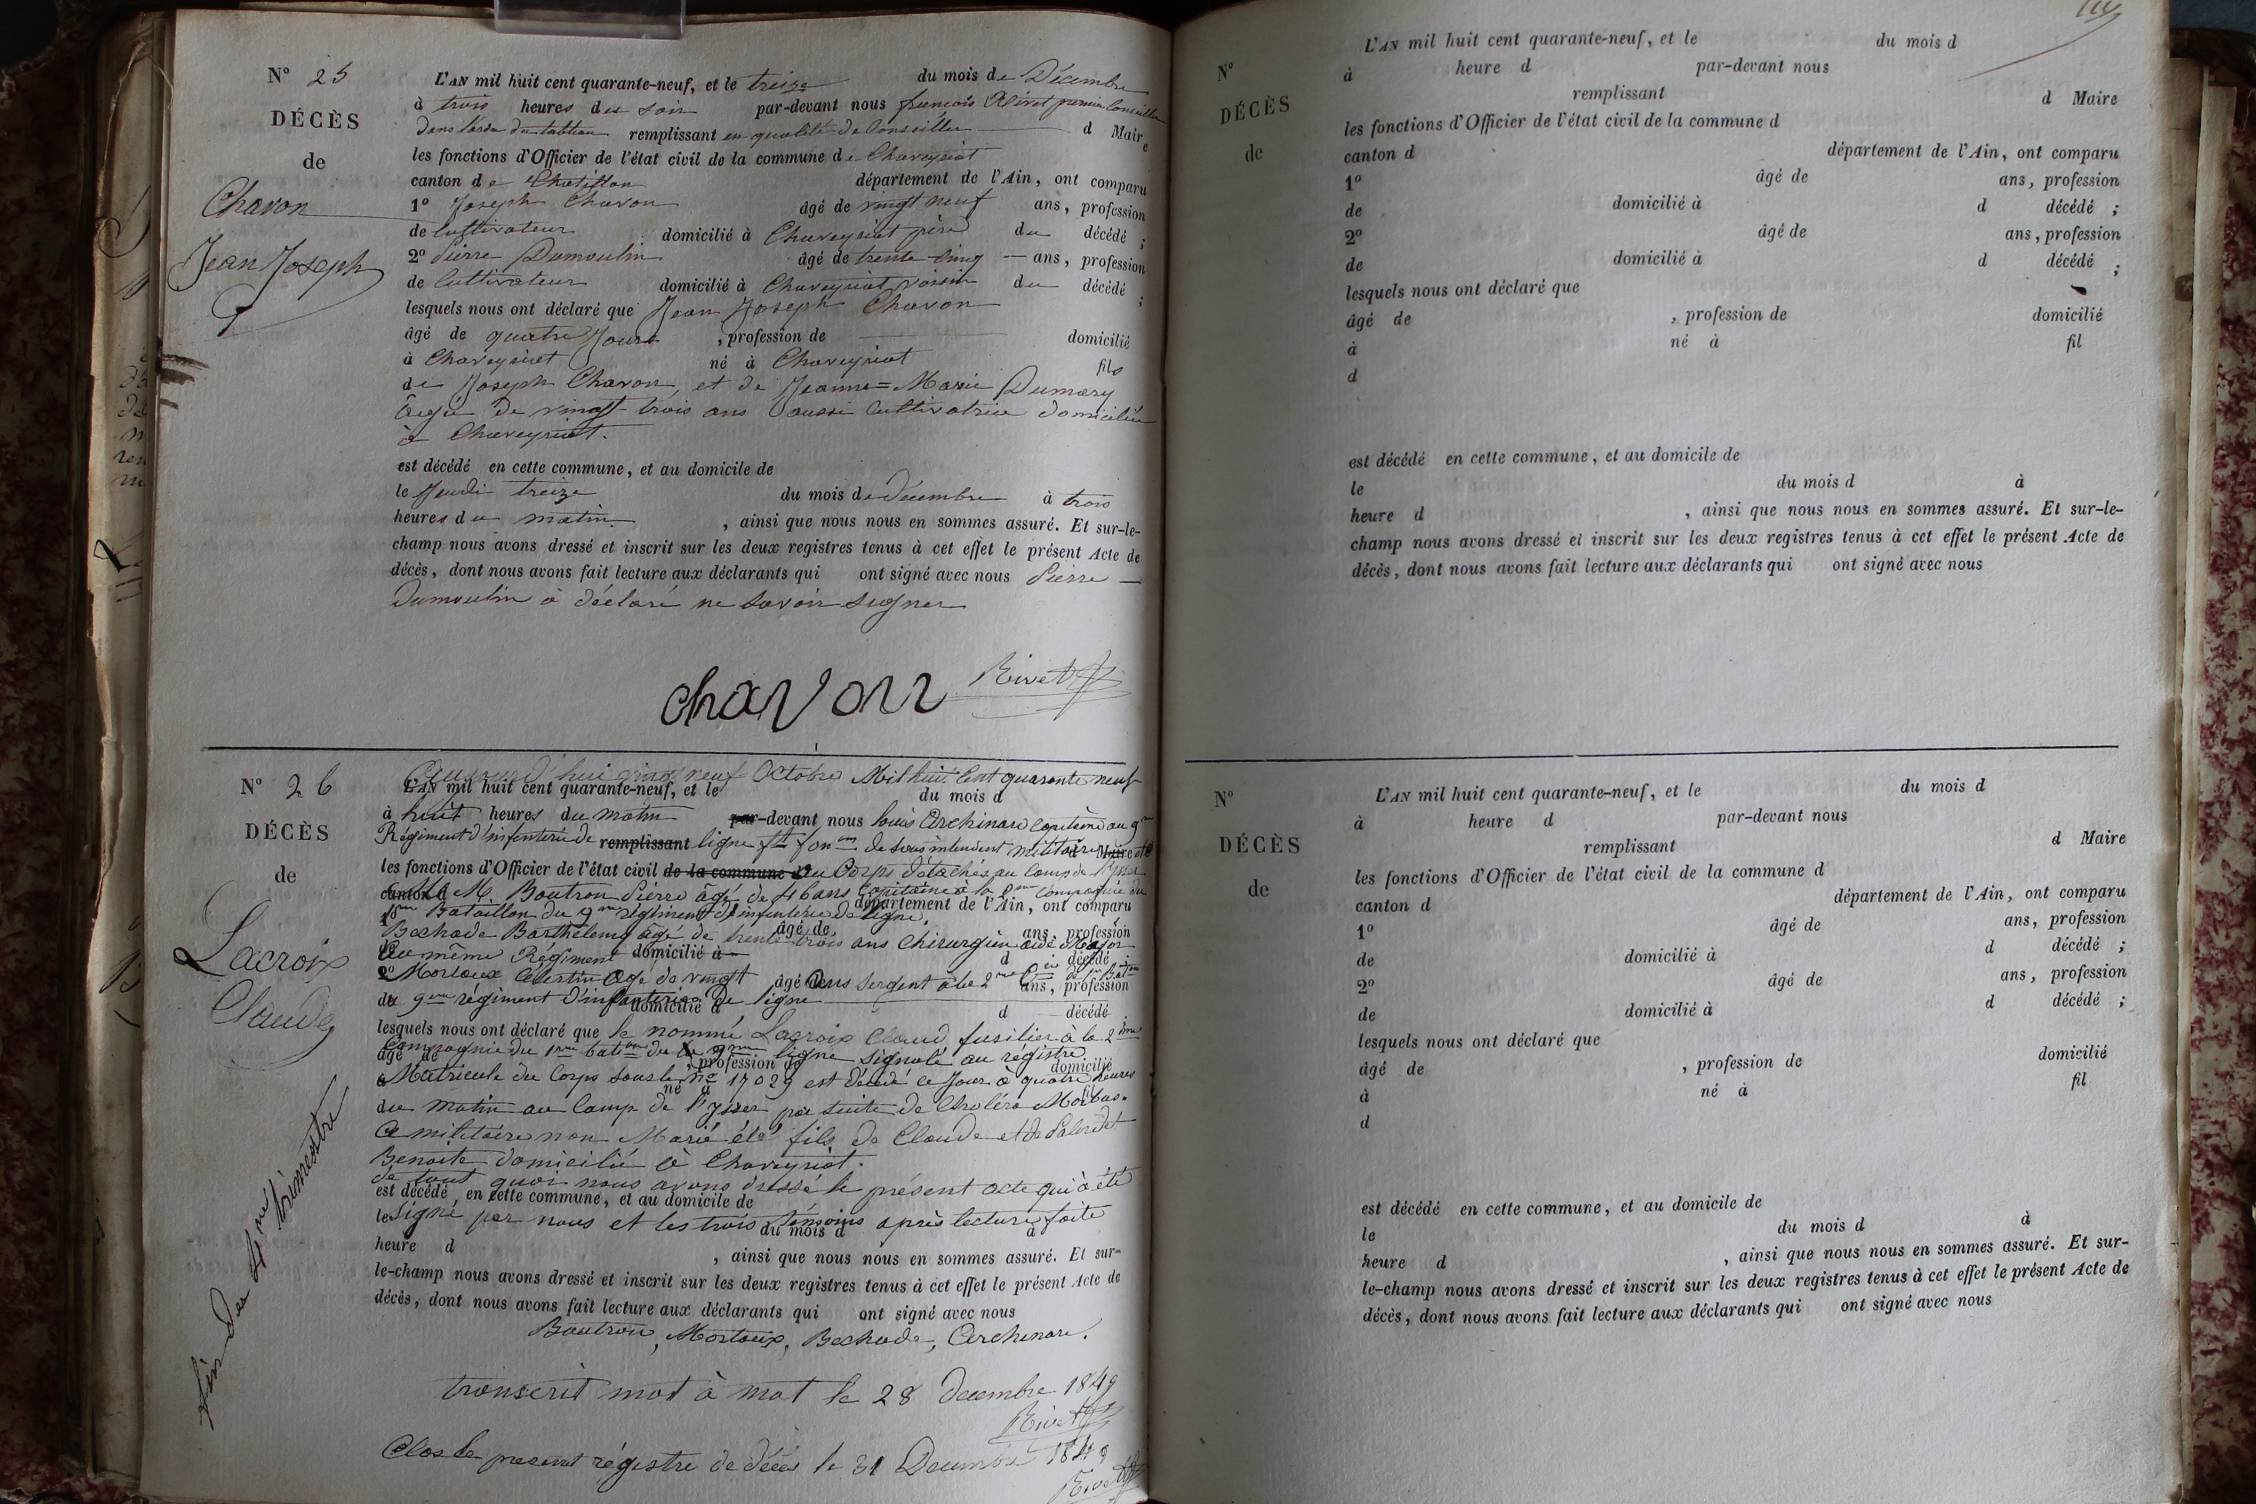 N° 25
DÉCÈS
de
Chavon
Jean Joseph
L'AN mil huit cent quarante-neuf, et le treize du mois de Décembre
à trois heures du soir par-devant nous françois Rivet premier Conseiller
dans l'ordre du tableau remplissant en qualité de Conseiller d Maire
les fonctions d'Officier de l'état civil de la commune de Chaveyriat
canton de Chatillon département de l'Ain, ont comparu
1° Joseph Chavon âgé de vingt neuf ans, profession
de Cultivateur domicilié à Chaveyriat père du décédé ;
2° Pierre Dumoulin âgé de trente cinq ans, profession
de Cultivateur domicilié à Chaveyriat voisin du décédé ;
lesquels nous ont déclaré que Jean Joseph Chavon
âgé de quatre Jours , profession de domicilié
à Chaveyriat né à Chaveyriat fils
de Joseph Chavon, et de Jeanne=Marie Dumary
âgée de vingt trois ans aussi Cultivatrice domiciliée
à Chaveyriat.
est décédé en cette commune, et au domicile de
le Jeudi treize du mois de décembre à trois
heures du matin , ainsi que nous nous en sommes assuré. Et sur-le-
champ nous avons dressé et inscrit sur les deux registres tenus à cet effet le présent Acte de
décès, dont nous avons fait lecture aux déclarants qui ont signé avec nous Pierre
Dumoulin à déclaré ne savoir signer
chavon Rivet
N° 26
DÉCÈS
de
Lacroix
Claude
fin du 4me trimestre
Aujourd'hui vingt neuf Octobre Mil huit Cent quarante neuf
L'AN mil huit cent quarante-neuf, et le du mois d
à huit heures du matin par-devant nous Louis Archinard Capitaine au 9me
Régiment d'infanterie de remplissant ligne ft fons de sous intendant militaire d Maire et
les fonctions d'Officier de l'état civil de la commune d au Corps détachés au Camp de l'ysser
canton d M. Boutron Pierre âgé de 46 ans Capitaine à la 2me Compagnie du
département de l'Ain, ont comparu
1er Bataillon du 9me régiment d'infanterie de ligne.
âgé de ans, profession
Bechade Barthélemy âgé de trente trois ans Chirurgien aide Major
Au même Régiment domicilié à d décédé ;
2° Mortoux Celestin Agé de vingt âgé de ans sergent à la 2me Cie du 1er Baton
ans, profession
du 9me régiment d'infanterie de ligne
domicilié à d décédé
lesquels nous ont déclaré que le nommé Lacroix Claud fusilier à la 2ème
Compagnie du 1er baton du 9me ligne signalé au régistre
âgé de , profession de domicilié
Matricule du Corps sous le No 17029 est décédé ce Jour à quatre heures
né à fil
du matin au Camp de l'ysser par suite de Choléra Morbus.
Ce militaire non Marié été fils de Claude et de
Benoite domicilié à Chaveyriat.
de tout quoi nous avons dressé le présent acte qui à été
est décédé en cette commune, et au domicile de
le Signé par nous et les trois témoins après lecture faite
du mois d à
heure d , ainsi que nous nous en sommes assuré. Et sur-
le-champ nous avons dressé et inscrit sur les deux registres tenus à cet effet le présent Acte de
décès, dont nous avons fait lecture aux déclarants qui ont signé avec nous
Boutron, Mortoux, Bechade, Archinard.
transcrit mot à mot le 28 decembre 1849
Rivet
Clos le present régistre de décès le 31 Decembre 1849
Rivet
N°
DÉCÈS
de
L'AN mil huit cent quarante-neuf, et le du mois d
à heure d par-devant nous
remplissant d Maire
les fonctions d'Officier de l'état civil de la commune d
canton d département de l'Ain, ont comparu
1° âgé de ans, profession
de domicilié à d décédé ;
2° âgé de ans, profession
de domicilié à d décédé ;
lesquels nous ont déclaré que
âgé de , profession de domicilié
à né à fil
d
est décédé en cette commune, et au domicile de
le du mois d à
heure d , ainsi que nous nous en sommes assuré. Et sur-le-
champ nous avons dressé et inscrit sur les deux registres tenus à cet effet le présent Acte de
décès, dont nous avons fait lecture aux déclarants qui ont signé avec nous
N°
DÉCÈS
de
L'AN mil huit cent quarante-neuf, et le du mois d
à heure d par-devant nous
remplissant d Maire
les fonctions d'Officier de l'état civil de la commune d
canton d département de l'Ain, ont comparu
1° âgé de ans, profession
de domicilié à d décédé ;
2° âgé de ans, profession
de domicilié à d décédé ;
lesquels nous ont déclaré que
âgé de , profession de domicilié
à né à fil
d
est décédé en cette commune, et au domicile de
le du mois d à
heure d , ainsi que nous nous en sommes assuré. Et sur-
le-champ nous avons dressé et inscrit sur les deux registres tenus à cet effet le présent Acte de
décès, dont nous avons fait lecture aux déclarants qui ont signé avec nous